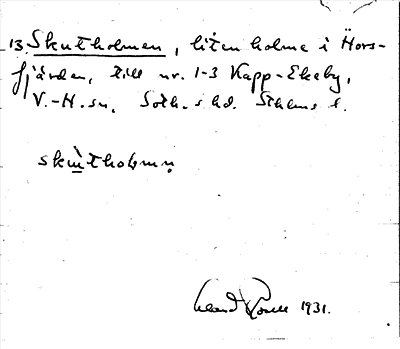 13. Skutholmen, liten holme i Hors-
fjärden, till nr. 1-3 Kapp-Ekeby,
V.-H. sn. Soth. s hd. Sthlms l.
skùtholmn̥
1931.